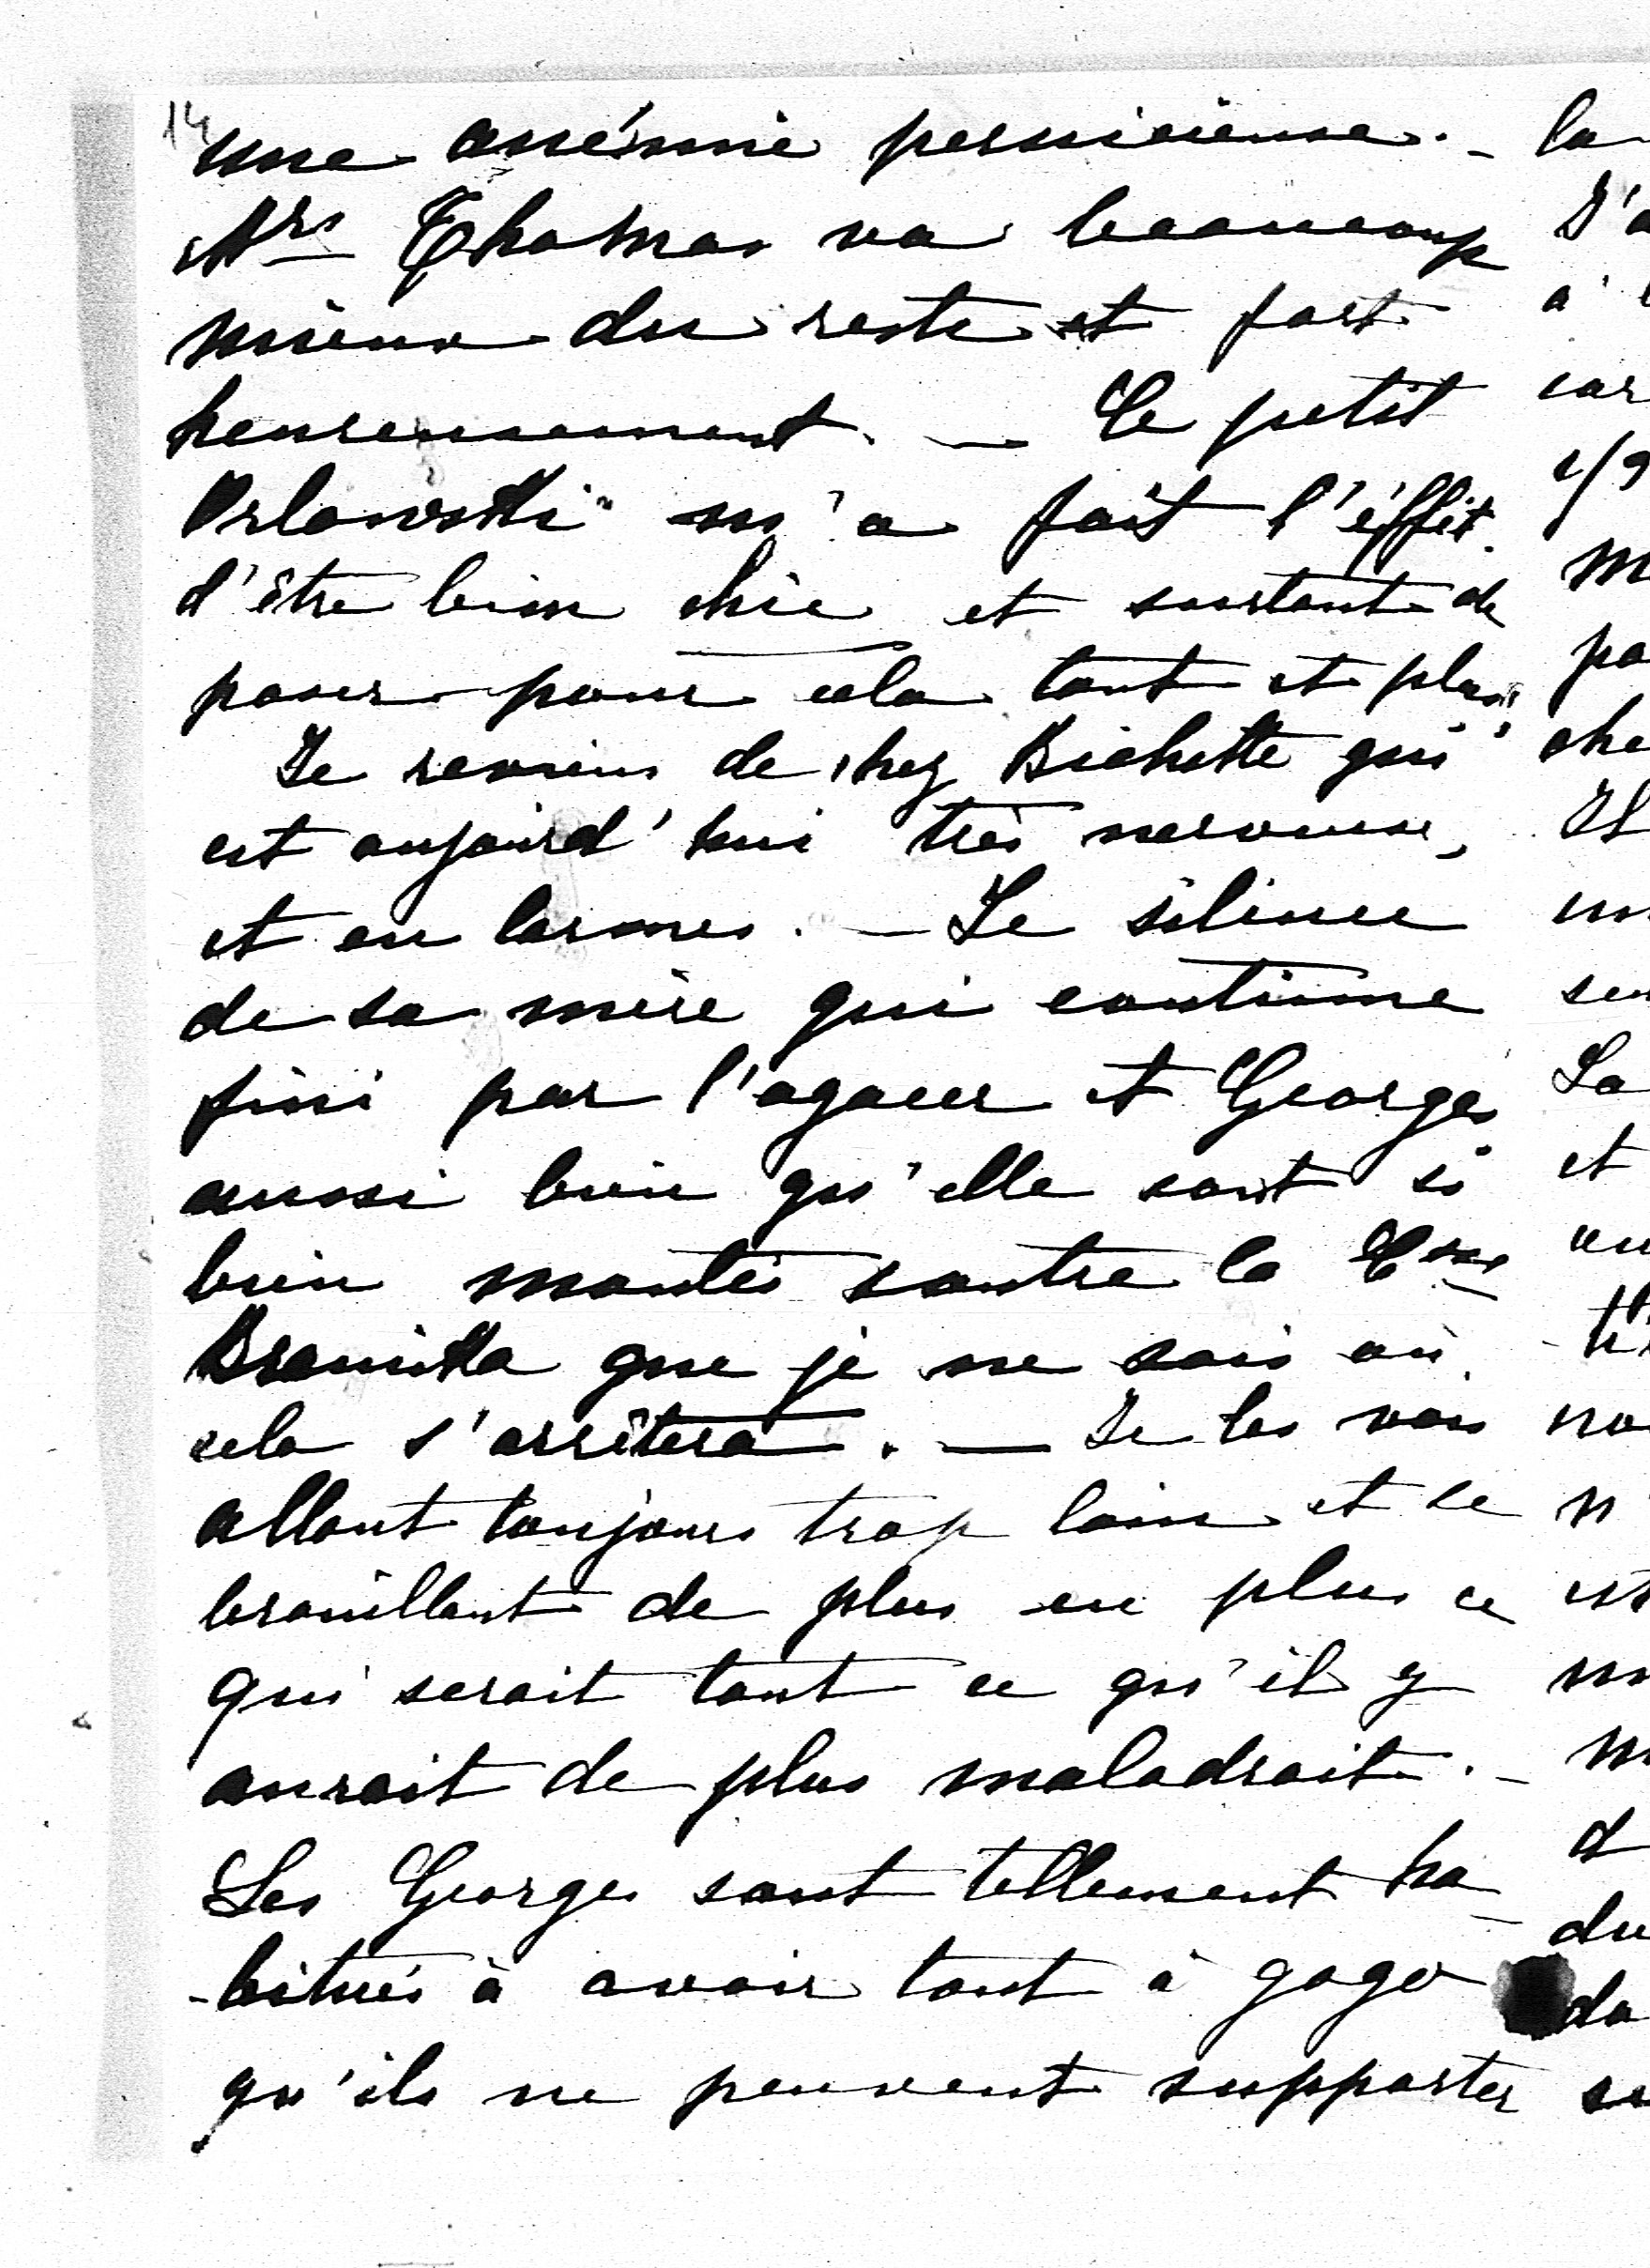 14
une anémie pernicieuse. _
Mrs Thomas va beaucoup
mieux du reste et fort
heureusement. — Ce petit
Orlowski m'a fait l'éffet
d'être bien chic et surtout de
poser pour cela tant et plus.
Je reviens de chez Bichette qui
est aujourd'hui très nerveuse,
et en larmes. — Le silence
de sa mère qui continue
fini par l'agacer et Georges
aussi bien qu'elle sont si
bien montés contre la Ctsse
Branicka que je ne sais où
cela s'arrêtera. — Je les vois
allant toujours trop loin et se
brouillant de plus en plus ce
qui serait tout ce qu'il y
aurait de plus maladroit. _
Les Georges sont tellement ha-
-bitués à avoir tout à gogo
qu'ils ne peuvent supporter
la
J'a
à
car
m
pa
che
Il
un
sen
La
et
no
n'
est
m
d
du
da